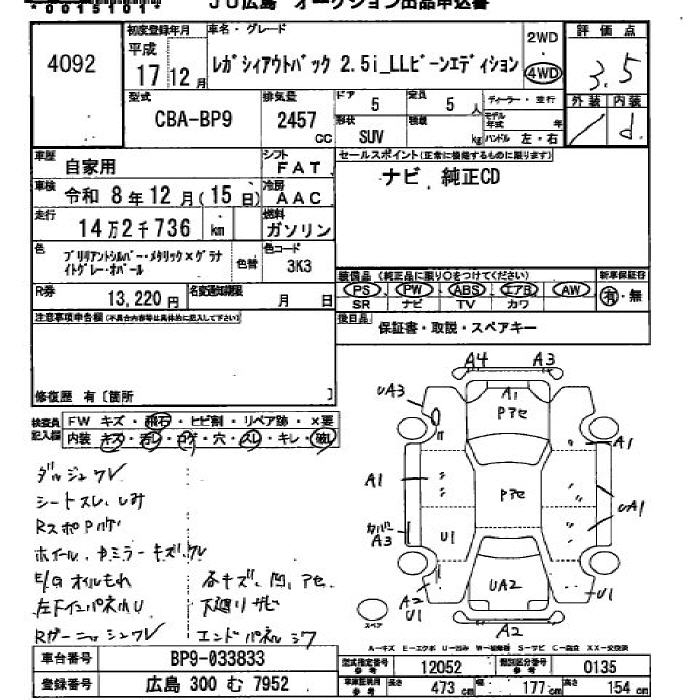 0015101
JU広島 オークション出品申込書
4092
初度登録年月
平成
17 12 月
車名・グレード
レガシィアウトバック 2.5i_LLビーンエディション
2WD
4WD
評価点
3.5
外装 内装
/ d
型式
CBA-BP9
排気量
2457
CC
ドア 5 定員 5 人
形状 SUV 積載 kg
ディーラー・並行
モデル年式 年
ハンドル 左・右
車歴 自家用
シフト FAT
車検 令和 8年12月(15日)
冷房 AAC
走行 14万2千736 km
燃料 ガソリン
色 ブリリアントシルバー・メタリック×グラナイトグレー・オパール
色替
色コード 3K3
R券 13,220円
名変通知期限 月 日
セールスポイント(正常に機能するものに限ります)
ナビ 純正CD
装備品(純正品に限り○をつけてください)
PS PW ABS エアB AW
SR ナビ TV カワ
新車保証書
有・無
後日品 保証書・取説・スペアキー
注意事項申告欄(不具合内容等は具体的に記入して下さい)
修復歴 有〔箇所 〕
検査員記入欄
FW キズ・飛石・ヒビ割・リペア跡・X要
内装 キズ・汚レ・コゲ・穴・スレ・キレ・破レ
ダッシュワレ
シートスレ、しみ
ホイール、
E/Gオイルもれ
Rガーニッシュワレ
各キズ、凹、アセ
下廻りサビ
エンドパネルシワ
A4 A3
UA3
A1
Pアセ
A1
A1
Pアセ
UA1
カバー
A3
U1
UA2
A2
U1
U1
A2
スペア
A-キズ E-エクボ U-凹み W-補修跡 S-サビ C-腐蝕 XX-交換済
車台番号 BP9-033833
登録番号 広島 300 む 7952
型式指定番号 参考 12052
類別区分番号 参考 0135
車庫証明用 参考
長さ 473 cm 幅 177 cm 高さ 154 cm